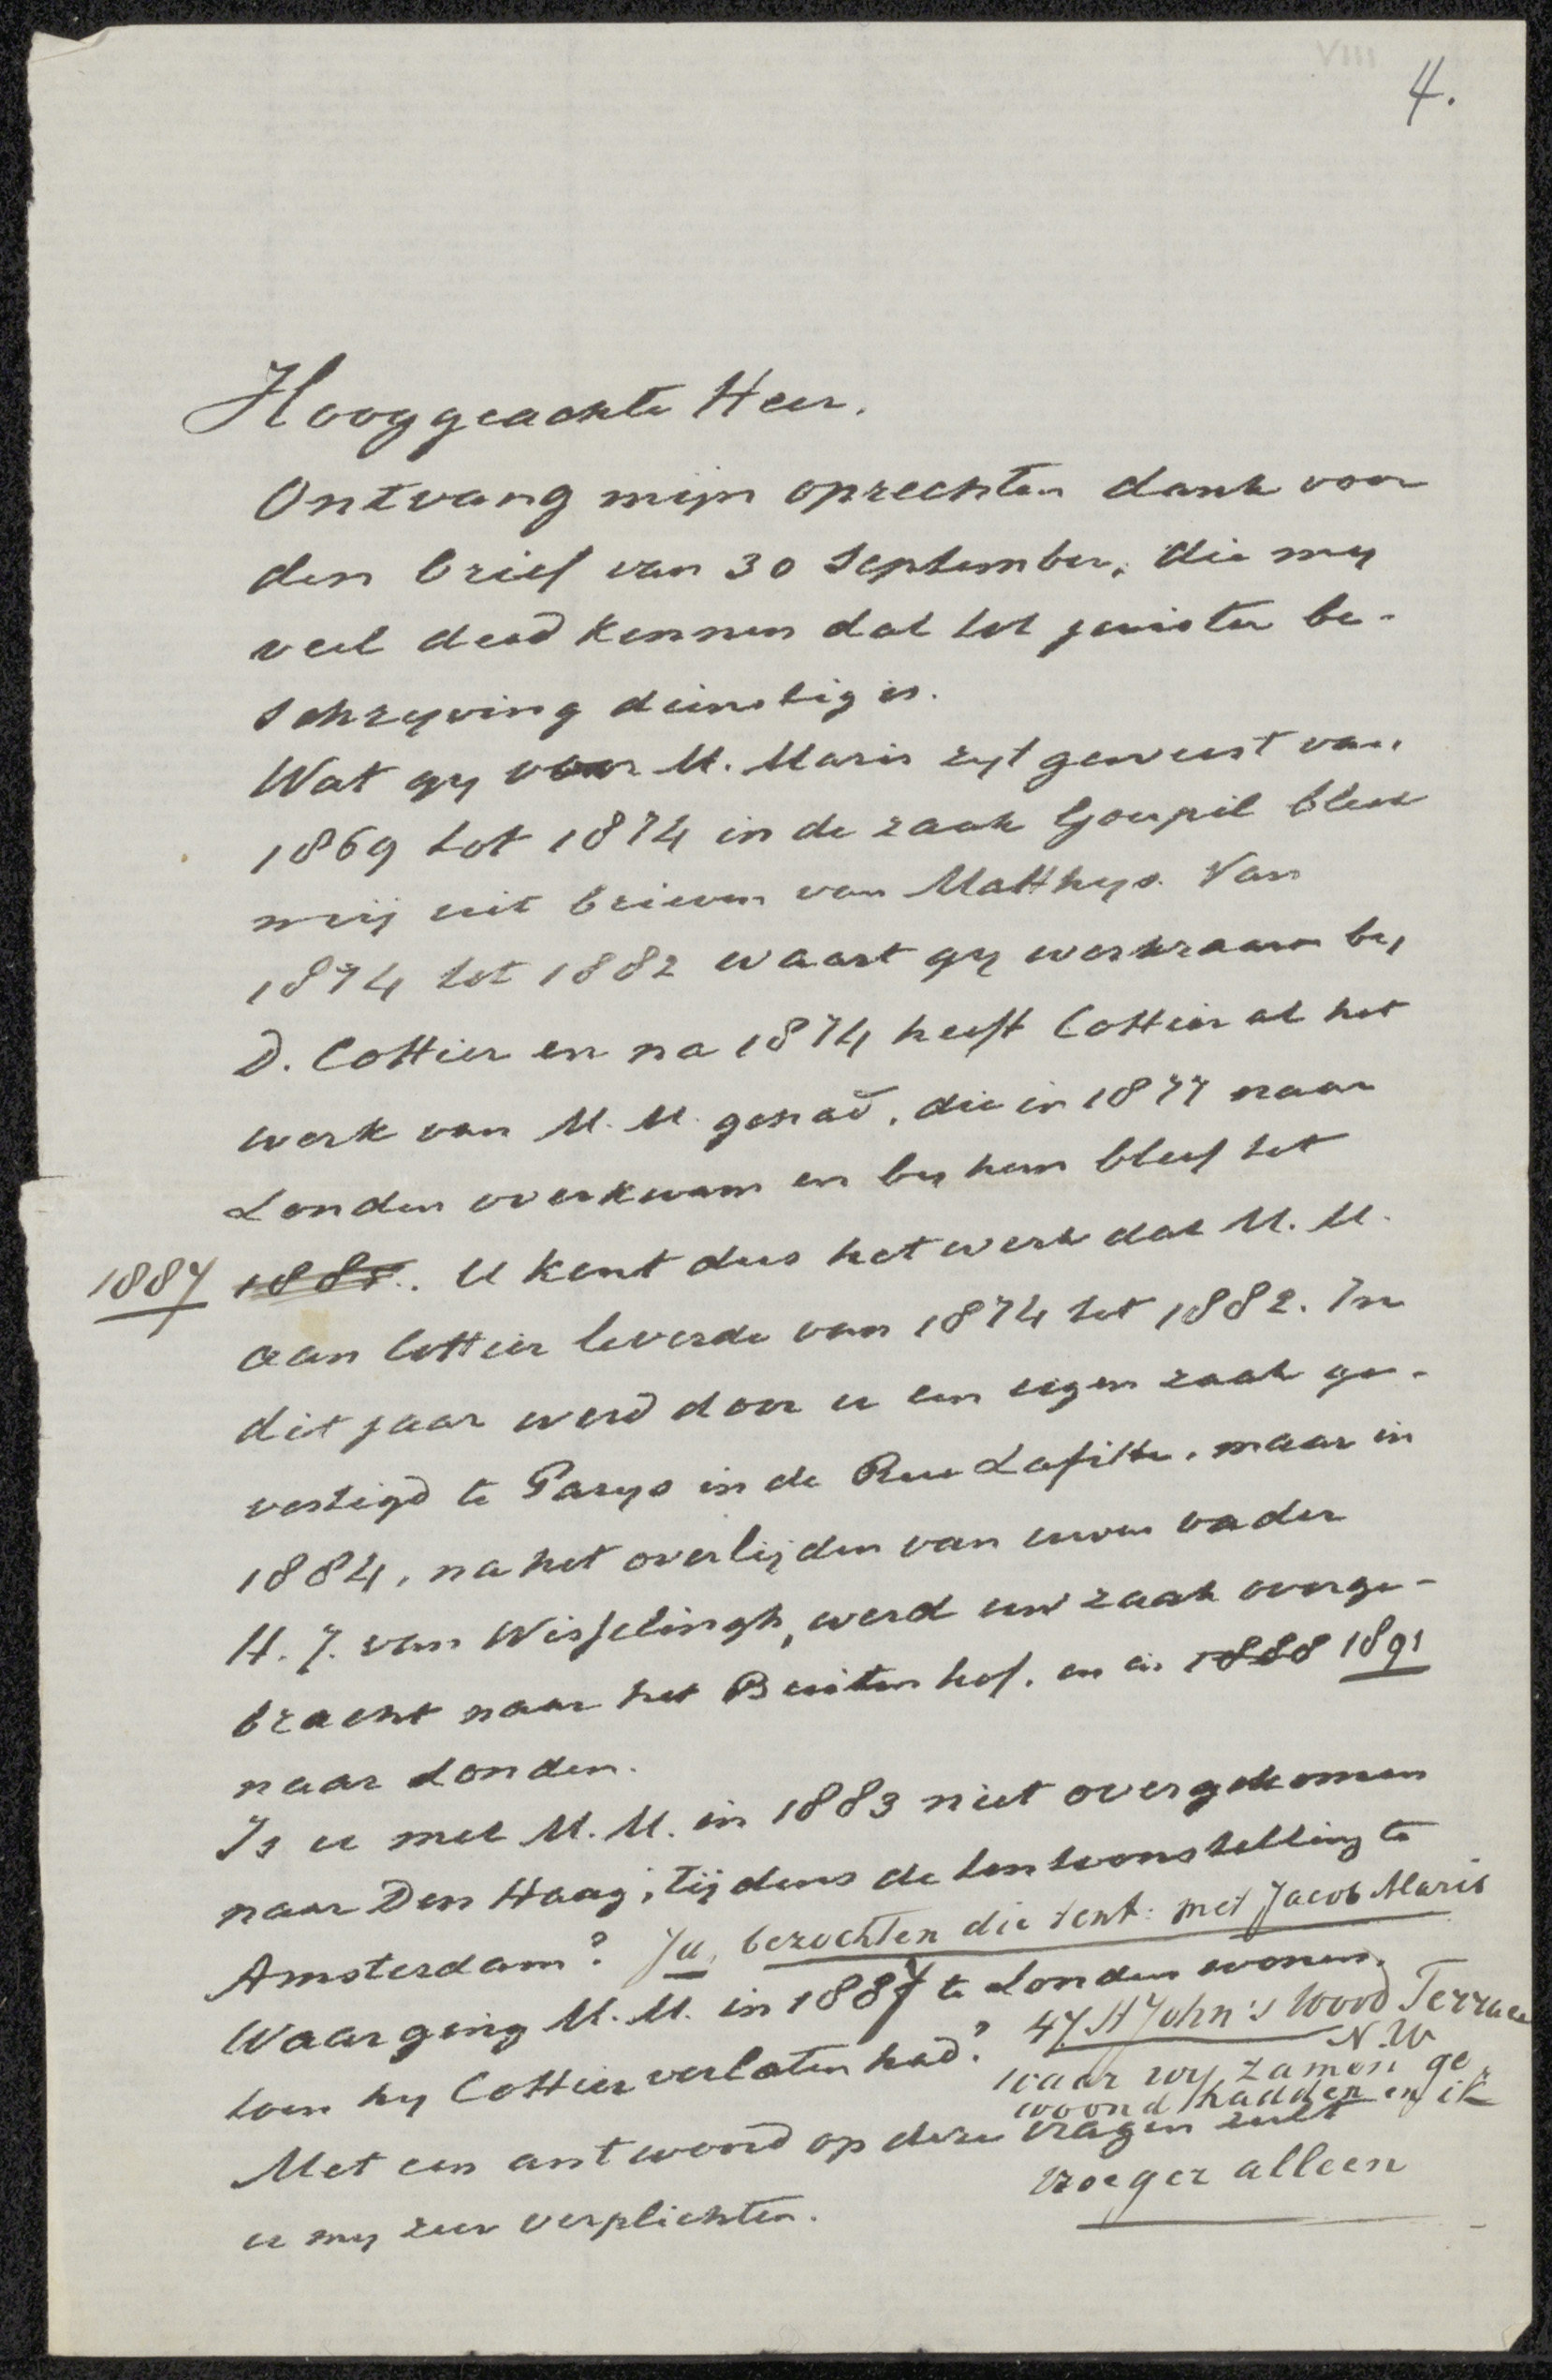 VIII
4.
Hooggeachte Heer,
Ontvang mijn oprechten dank voor
den brief van 30 September, die my
veel deed kennen dat tot juister be-
schryving dienstig is.
Wat gy voor M. Maris zyt geweest van
1869 tot 1874 in de zaak Goupil bleek
mij uit brieven van Matthys. Van
1874 tot 1882 waart gy werkzaam by
D. Cottier en na 1874 heeft Cottier al het
werk van M. M. gehad, die in 1877 naar
Londen overkwam en by hem bleef tot
1887 1888. U kent dus het werk dat M. M.
aan Cottier leverde van 1874 tot 1882. In
dit jaar werd door u een eigen zaak ge-
vestigd te Parys in de Rue Lafitte, maar in
1884, na het overlijden van uwen vader
H. J. van Wisselingh, werd uw zaak overge-
bracht naar het Buitenhof, en in 1888 1891
naar Londen.
Is u met M. M. in 1883 niet overgekomen
naar Den Haag, tijdens de tentoonstelling te
Amsterdam? Ja, bezochten die tent: met Jacob Maris
Waar ging M. M. in 1887 te Londen wonen,
toen hy Cottier verlaten had? 47 St John's Wood Terrace
N.W
waar wy zamen ge
woond hadden en ik
Met een antwoord op deze vragen zult
vroeger alleen
u my zeer verplichten.